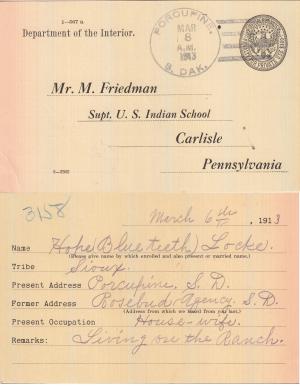 1—567 a
Department of the Interior.
PORCUPINE,
MAR
8
A.M.
1913
S. DAK.
Mr. M. Friedman
Supt. U. S. Indian School
Carlisle
Pennsylvania
3158
March 6th, 1913
Name Hope (Blueteeth) Locke.
(Please give name by which enrolled and also present or married name.)
Tribe Sioux.
Present Address Porcupine, S. D.
Former Address Rosebud Agency, S. D.
(Address from which we heard from you last.)
Present Occupation House-wife.
Remarks: Living on the Ranch.